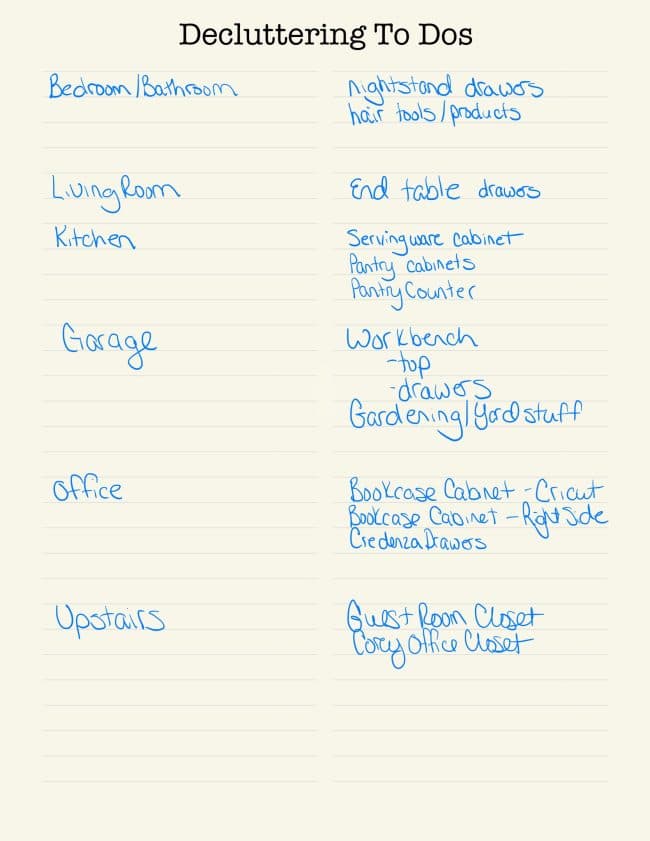 Decluttering To Dos
Bedroom/Bathroom nightstand drawers
hair tools/products
Living Room End table drawers
Kitchen Servingware cabinet
Pantry cabinets
Pantry Counter
Garage Workbench
-top
-drawers
Gardening/Yard stuff
Office Bookcase Cabnet - Cricut
Bookcase Cabinet - Right Side
Credenza Drawers
Upstairs Guest Room Closet
Corey Office Closet